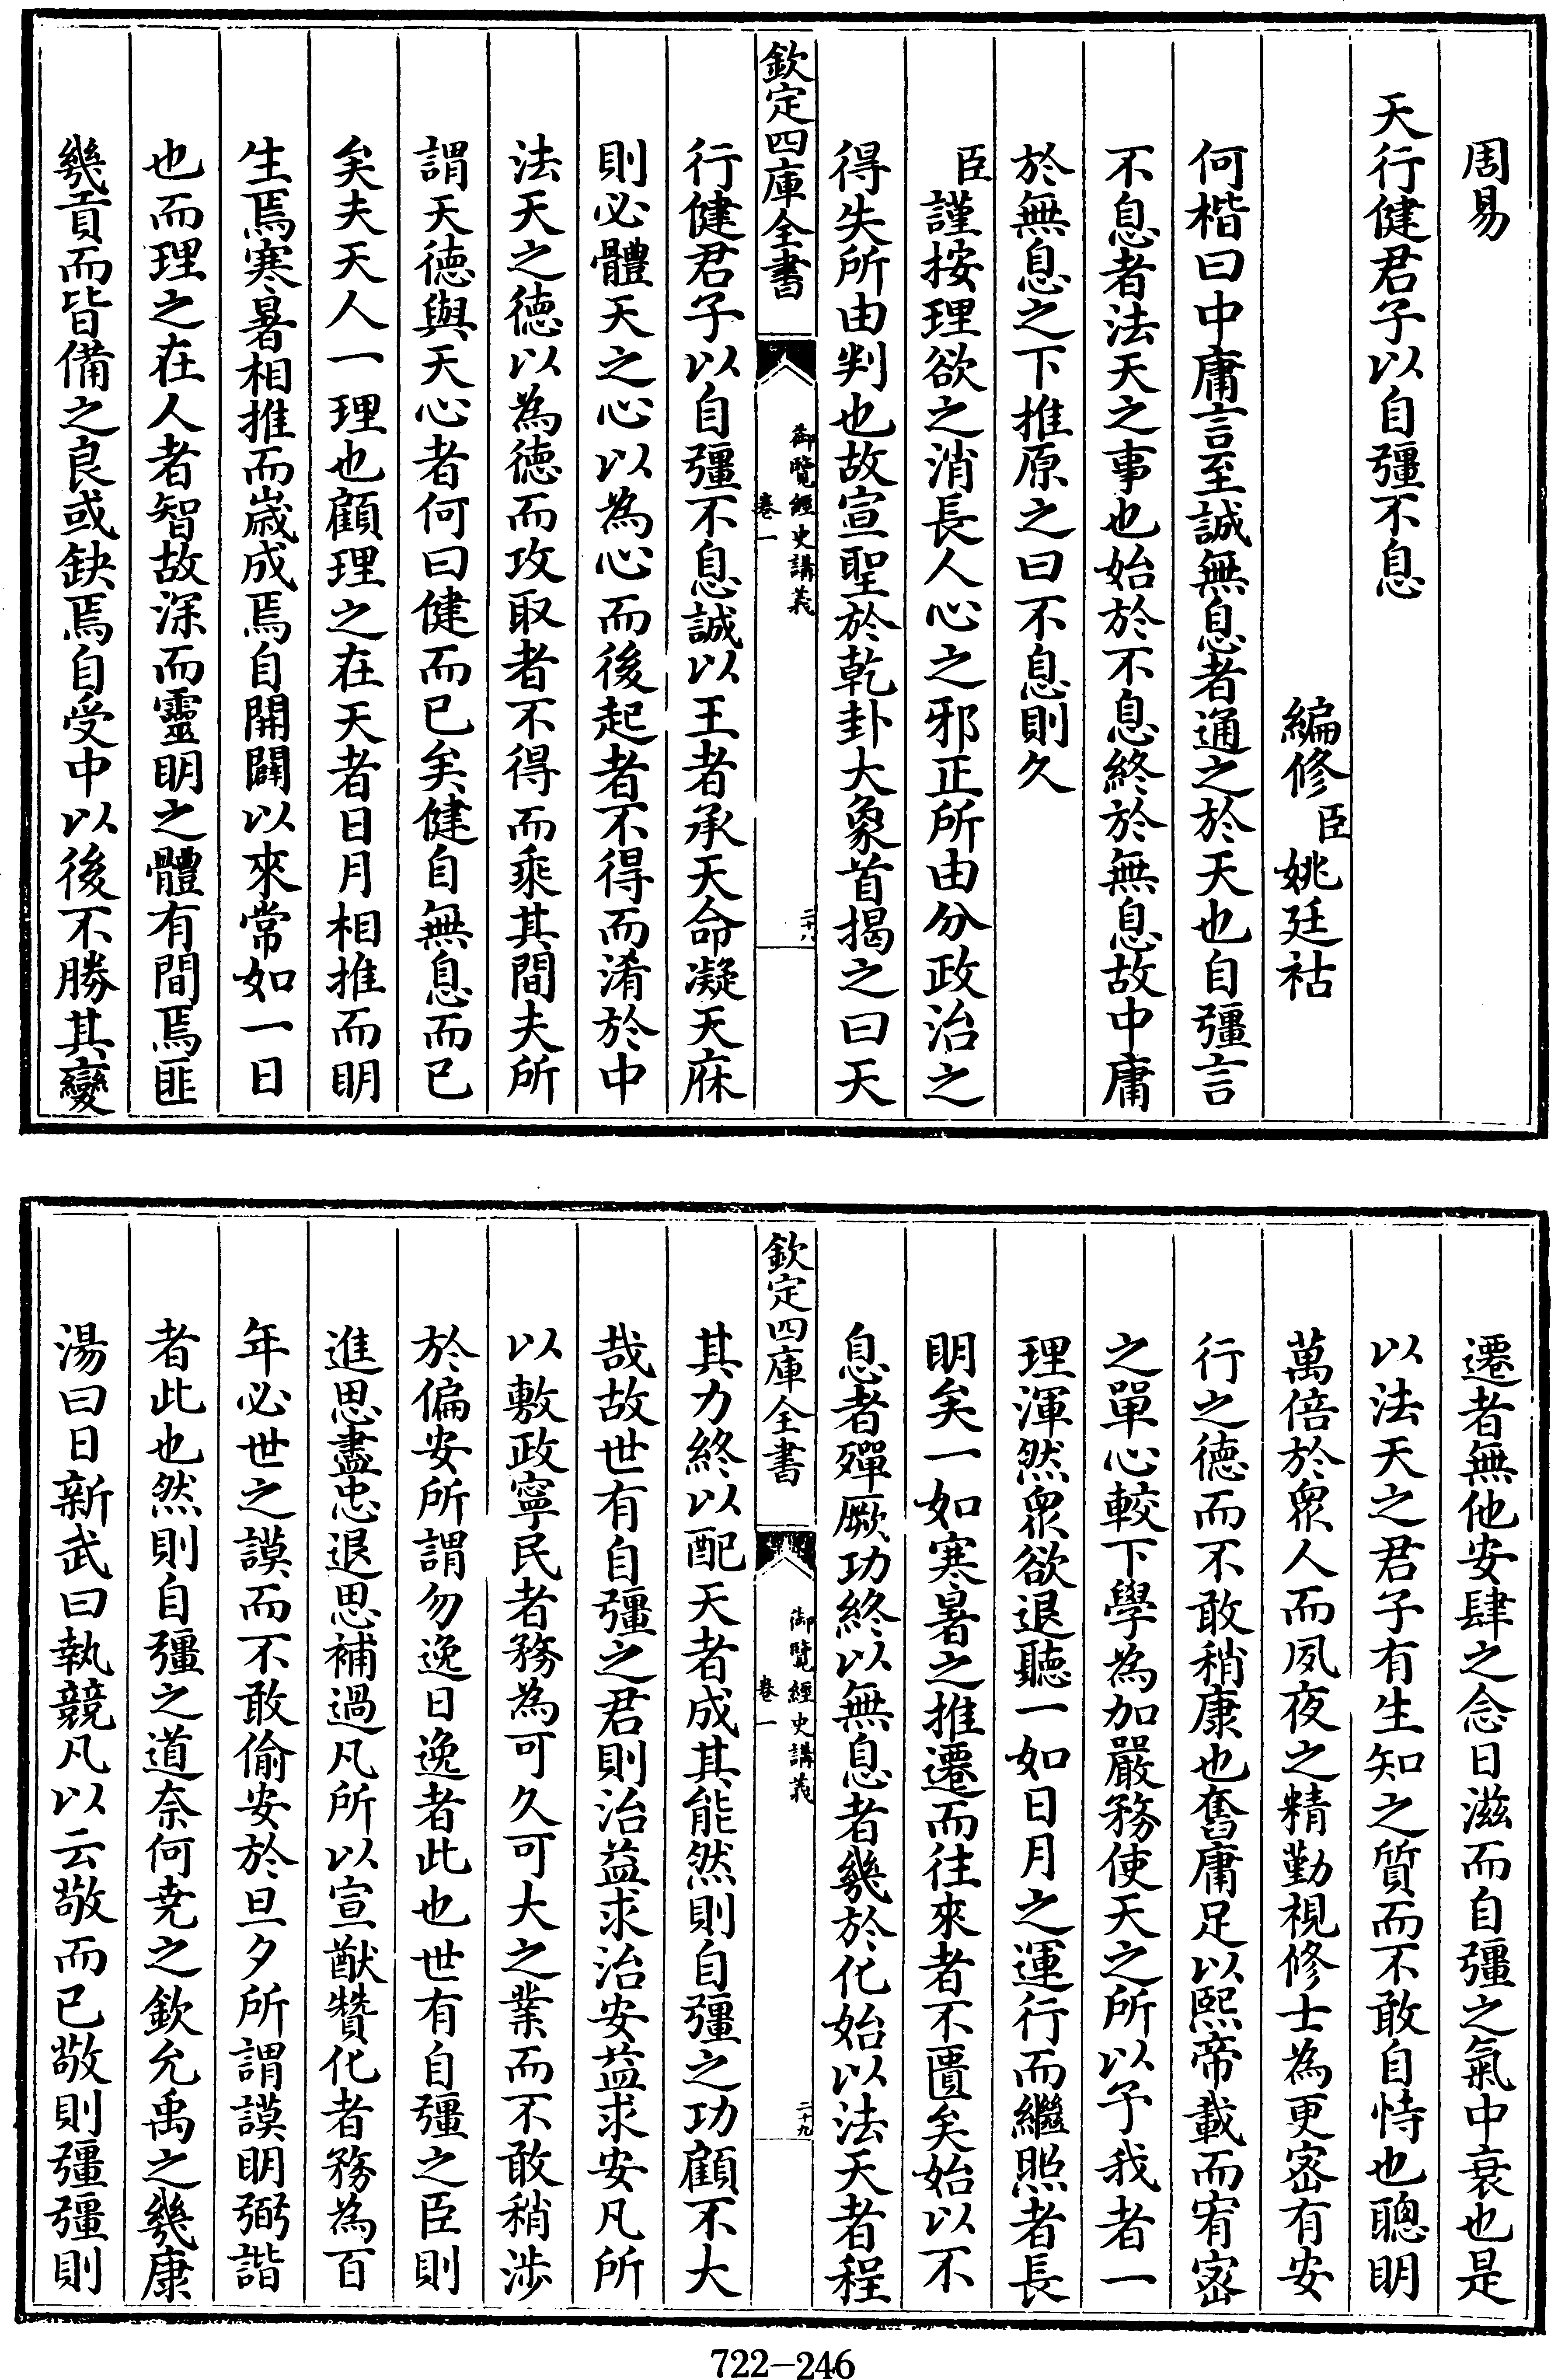 周易
天行健君子以自彊不息
編修臣姚廷祜
何楷曰中庸言至誠無息者通之於天也自彊言
不息者法天之事也始於不息終於無息故中庸
於無息之下推原之曰不息則久
臣謹按理欲之消長人心之邪正所由分政治之
得失所由判也故宣聖於乾卦大象首揭之曰天
欽定四庫全書
御覽經史講義
卷一
二十八
行健君子以自彊不息誠以王者承天命凝天庥
則必體天之心以為心而後起者不得而淆於中
法天之德以為德而攻取者不得而乘其間夫所
謂天德與天心者何曰健而已矣健自無息而已
矣夫天人一理也顧理之在天者日月相推而明
生焉寒暑相推而歲成焉自開闢以來常如一日
也而理之在人者智故深而靈明之體有間焉匪
幾貢而皆備之良或缺焉自受中以後不勝其變
遷者無他安肆之念日滋而自彊之氣中衰也是
以法天之君子有生知之質而不敢自恃也聰明
萬倍於眾人而夙夜之精勤視修士為更密有安
行之德而不敢稍康也奮庸足以熙帝載而宥密
之單心較下學為加嚴務使天之所以予我者一
理渾然眾欲退聽一如日月之運行而繼照者長
明矣一如寒暑之推遷而往來者不匱矣始以不
息者殫厥功終以無息者幾於化始以法天者程
欽定四庫全書
御覽經史講義
卷一
二十九
其力終以配天者成其能然則自彊之功顧不大
哉故世有自彊之君則治益求治安益求安凡所
以敷政寧民者務為可久可大之業而不敢稍涉
於偏安所謂勿逸日逸者此也世有自彊之臣則
進思盡忠退思補過凡所以宣猷贊化者務為百
年必世之謨而不敢偷安於旦夕所謂謨明弼諧
者此也然則自彊之道奈何堯之欽允禹之幾康
湯曰日新武曰執競凡以云敬而已敬則彊彊則
722-246